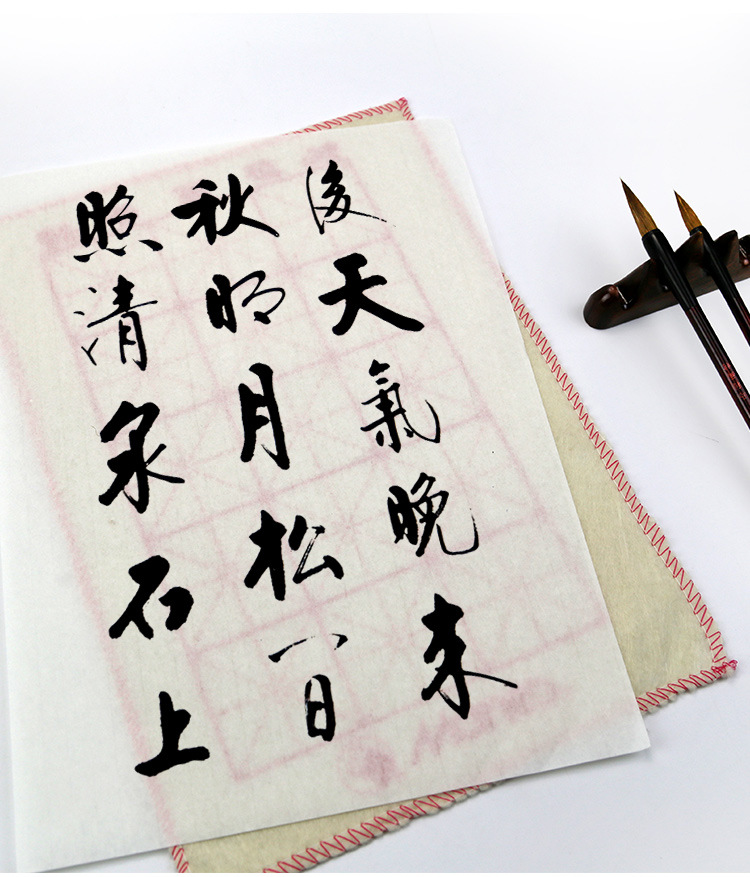 後天氣晚来
秋明月松間
照清泉石上